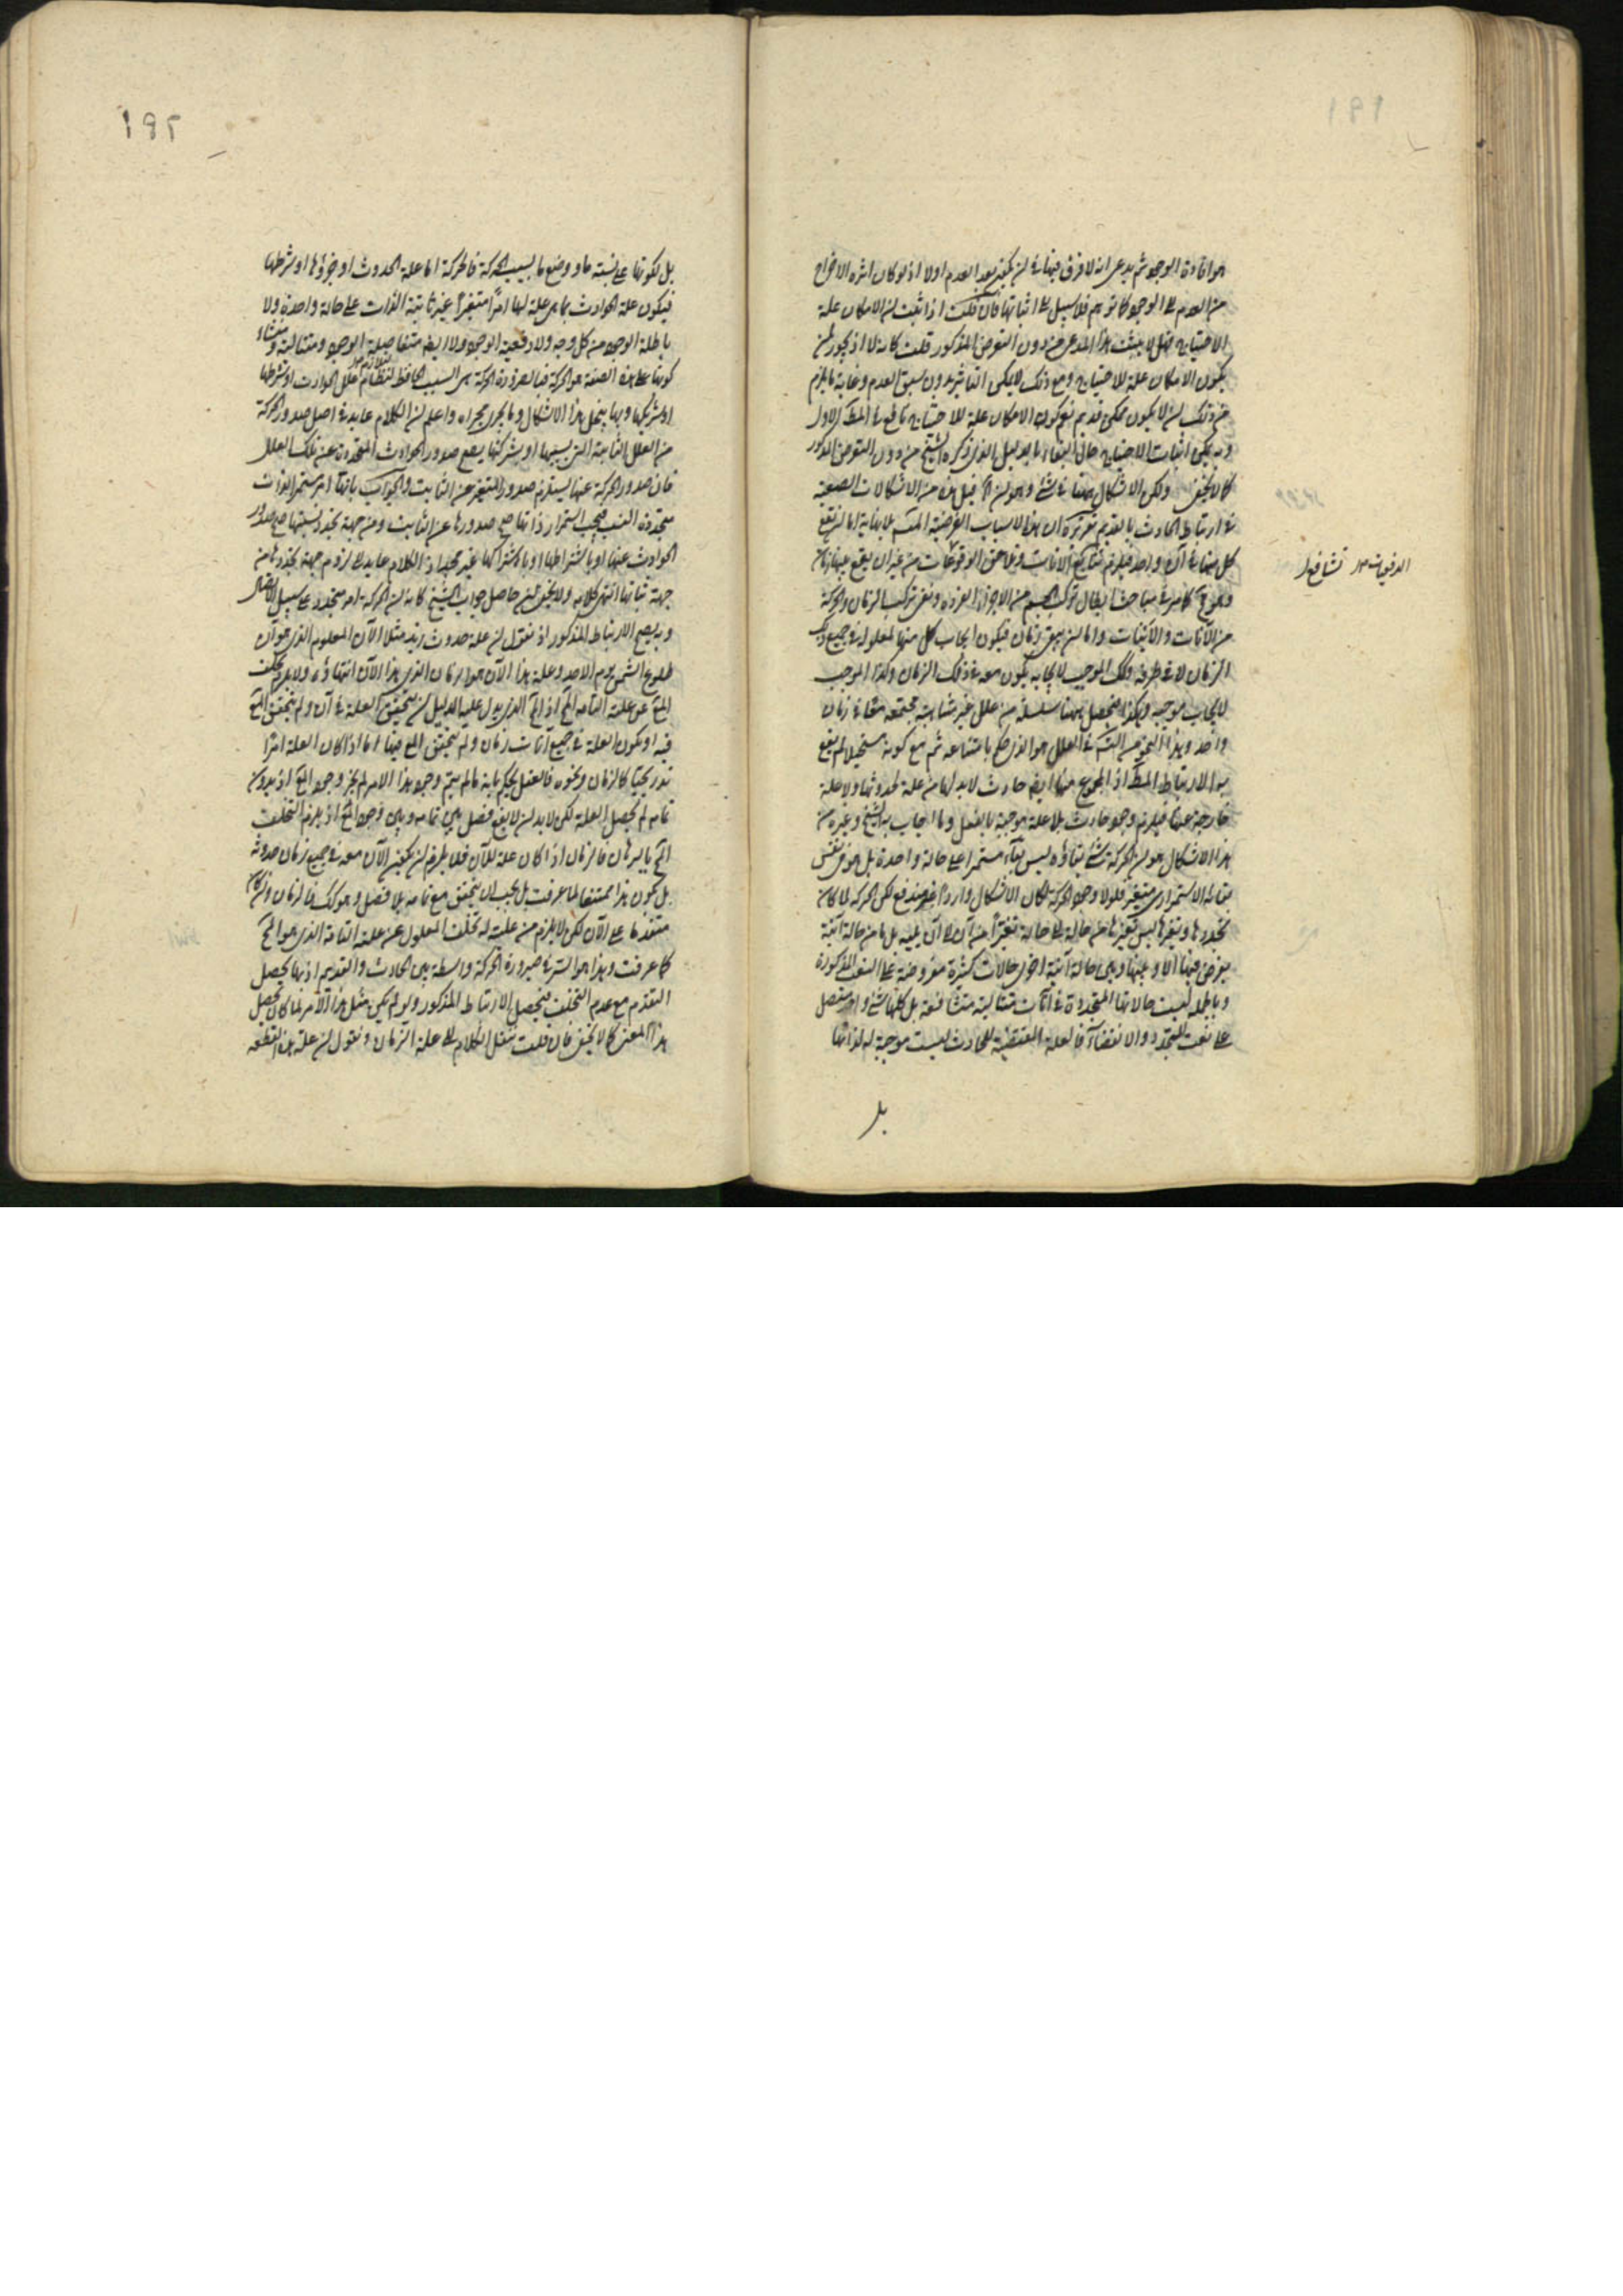 هو افادة الوجود ثم يدعى انه لا فرق فيها في ان يكون بعد العدم اولا اذ لو كان اثره الاخراج
من العدم الى الوجود كما توهم فلا سبيل الى اثباتها فان قلت اذا ثبت ان الامكان علة
الاحتياج فهل لا يثبت هذا المدعى من دون التعرض المذكور قلت كانه لا اذ يجوز ان
يكون الامكان علة للاحتياج ومع ذلك لا يمكن التاثير بدون سبق العدم وغاية ما يلزم
من ذلك ان لا يكون ممكن قديم نعم كون الامكان علة للاحتياج نافع في المط الاول
وبه يمكن اثبات الاحتياج حال البقاء بالدليل الذي ذكره الشيخ من دون التعرض المذكور
كما لا يخفى ولكن الاشكال ههنا في شئ وهو ان قيل هذا من الاشكالات الصعبة
في ارتباط الحادث بالقديم تقريره ان هذه الاسباب الغير المتناهية اما ان تقع
كل منها في آن واحد فيلزم تتابع الآنات وتلاحق الوقوعات من غير ان يقع بينها زمان
وهو مح كما مر في مباحث ابطال تركب الجسم من الاجزاء الفردة ونفى تركب الزمان والحركة
من الآنات والآنيات واما ان يبقى زمان فيكون ايجاب كل منها لمعلوله في جميع ذلك
الزمان لا في طرفه وذلك الموجب لايجابه يكون معه في ذلك الزمان وكذا الموجب
لايجاب موجبه وهكذا فيحصل ههنا سلسلة من علل غير متناهية مجتمعة معا في زمان
واحد وهذا النحو من التس في العلل هو الذي حكم بامتناعه ثم مع كونه مستحيلا لم يقع
به الارتباط المط اذ المجموع منها ايضا حادث لا بد لها من علة لحدوثها ولا علة
خارجة عنها فيلزم وجود حادث بلا علة موجبة بالفعل وما اجاب به الشيخ وغيره من
هذا الاشكال هو ان الحركة شئ بقاؤه ليس بقاء مستمرا على حالة واحدة بل هو في نفس
بقائه الاستمراري متغير فلولا وجود الحركة لكان الاشكال واردا غير مندفع لكن الحركة لما كان
تجددها وتغيرها ليس تغيرها من حالة الى حالة تغيرا من آن الى آن يليه بل ما من حالة آنية
يفرض فيها الا وبينها وبين حالة آنية اخرى حالات كثيرة مفروضة على النعت المذكورة
وبالجملة ليست حالاتها المتجددة في آنات متتالية متشافعة بل كلها شئ واحد متصل
على نعت التجدد والانقضاء فالعلة المقتضية للحادث ليست موجبة له لذاتها
بل
الدفعيات تشافع
١٩٢
بل لكونها على نسبة ما ووضع ما بسبب الحركة فالحركة اما علة الحدوث او جزؤها او شرطها
فيكون علة الحوادث بما هي علة لها امرا متغيرا غير ثابتة الذات على حالة واحدة ولا
باطلة الوجود من كل وجه ولا دفعية الوجود ولا ايضا متفاصلة الوجود ومتتاليه ومنشاء
كونها على هذه الصفة هو الحركة فبالضرورة الحركة هي السبب الحافظ لنظام علل الحوادث او شرطها
او شريكها وبها ينحل هذا الاشكال وما يجرى مجراه واعلم ان الكلام عايد في اصل صدور الحركة
من العلل الثابتة التي بسببها او بشركتها يصح صدور الحوادث المتجددة عن تلك العلل
فان صدور الحركة عنها يستلزم صدور المتغير عن الثابت والجواب بانها امر مستمر الذات
متجددة النسب فبحسب استمرار ذاتها صح صدورها عن الثابت ومن جهة تجدد نسبتها صح صدور
الحوادث عنها او باشتراطها او باشتراكها غير مجد اذ الكلام عايد الى لزوم جهة تجددها من
جهة ثباتها انتهى كلامه ولا يخفى ان حاصل جواب الشيخ كانه ان الحركة امر متجدد على سبيل الاتصال
وبه يصح الارتباط المذكور اذ نقول ان علة حدوث زيد مثلا الآن المعلوم الذي هو آن
طلوع الشمس يوم الاحد وعلة هذا الآن هو الزمان الذي هذا الآن انتهاؤه ولا يلزم تخلف
المع عن علته التامه المح اذ المح الذي يدل عليه الدليل ان يتحقق العلة في آن ولم يتحقق المع
فيه او يكون العلة في جميع آنات زمان ولم يتحقق المع فيها اما اذا كان العلة امرا
تدريجيا كالزمان ونحوه فالعقل يحكم بانه ما لم يتم وجود هذا الامر لم يجز وجود المع اذ بدون
تمامه لم يحصل العلة لكن لا بد ان لا يقع فصل بين تمامه وبين وجود المع اذ يلزم التخلف
المح بالبرهان فالزمان اذا كان علة للآن فلا يلزم ان يكون الآن معه في جميع زمان حدوثه
بل يكون هذا ممتنعا لما عرفت بل يجب ان يتحقق مع تمامه بلا فصل وهو كك فالزمان وان كان
متقدما على الآن لكن لا يلزم من عليته له تخلف المعلول عن علته التامة الذي هو المح
كما عرفت وهذا هو السر في صيرورة الحركة واسطة بين الحادث والقديم اذ بها يحصل
التقدم مع عدم التخلف فيحصل الارتباط المذكور ولو لم يكن مثل هذا الامر لما كان يحصل
هذا المعنى كما لا يخفى فان قلت ننقل الكلام الى علة الزمان ونقول ان علة هذه القطعة